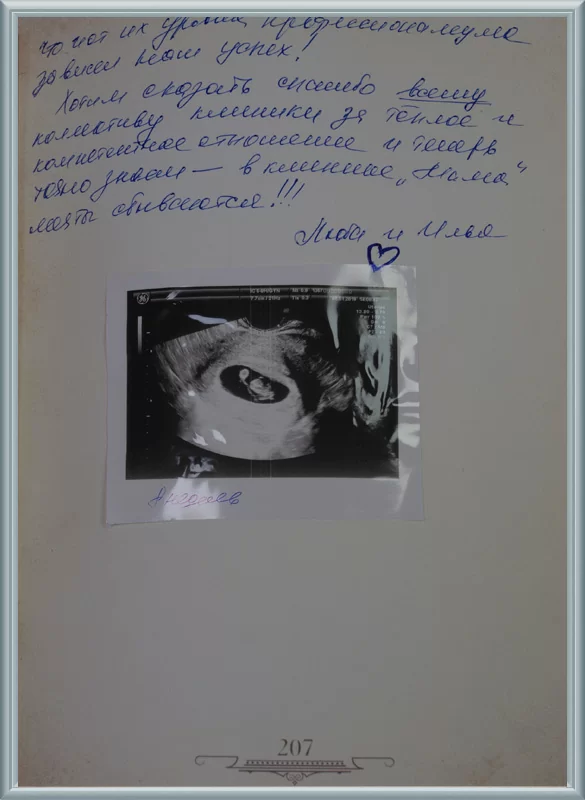 что от их уровня профессионализма
зависел наш успех!
Хотим сказать спасибо всему
коллективу клиники за тёплое и
компетентное отношение и теперь
точно знаем — в клинике „Мама"
мечты сбываются!!!
Люба и Илья
8 недель
207